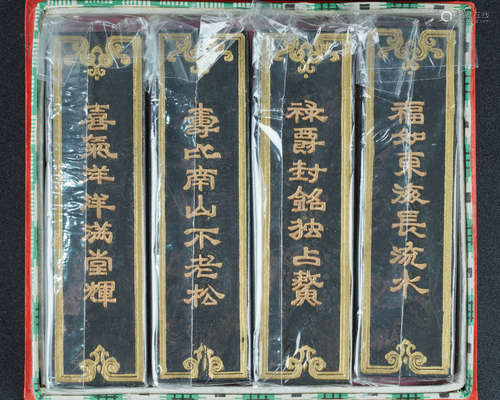 福如东海長流水
禄爵封銘独占鰲
壽比南山不老松
喜氣洋洋滿堂輝